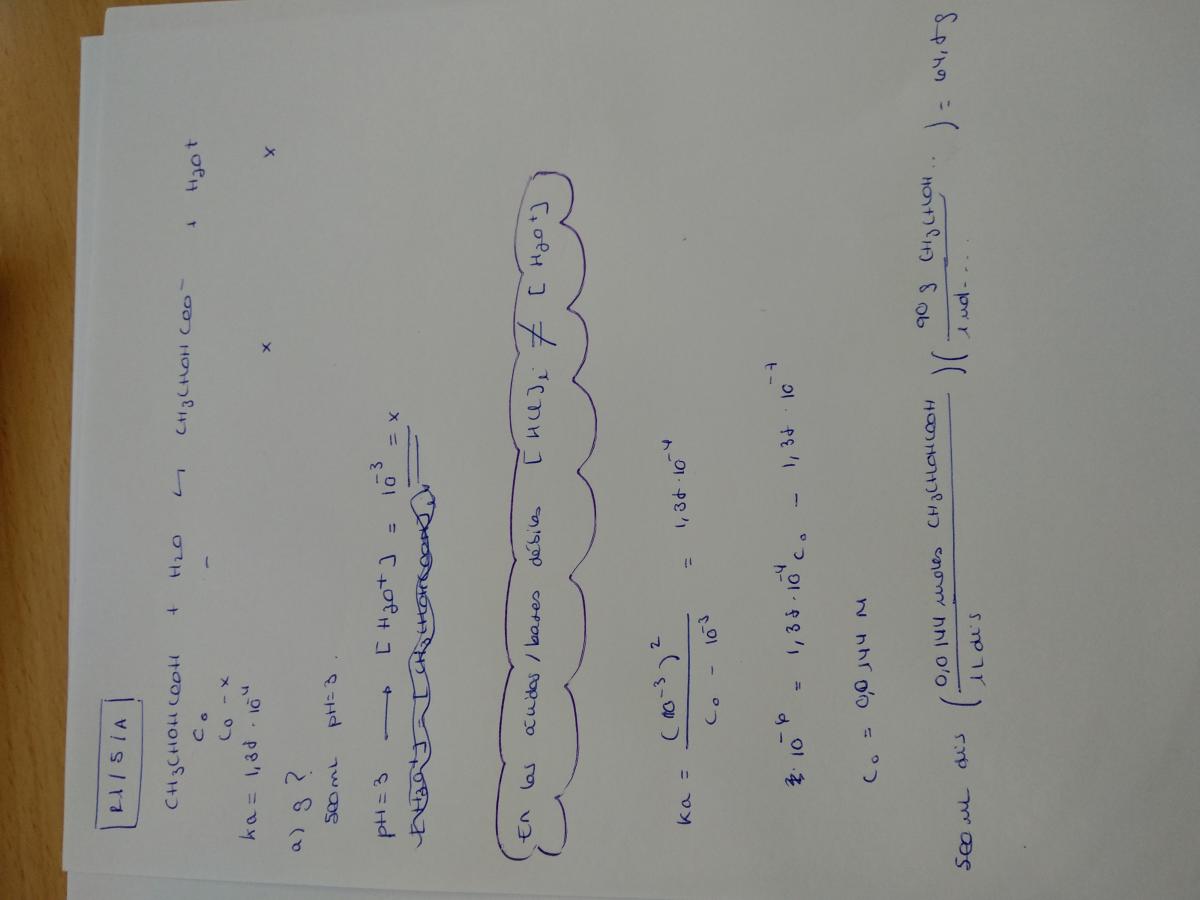 R1/S/A
CH3CHOHCOOH + H2O ⇆ CH3CHOHCOO⁻ + H3O+
C₀ –
C₀-x x x
ka = 1,38·10⁻⁴
a) g?
500mL pH=3.
pH=3 ⟶ [H3O+] = 10⁻³ = x
[H3O+] = [CH3CHOHCOOH]
En los ácidos/bases débiles [HCl]i ≠ [H3O+]
ka = (10⁻³)² / C₀ - 10⁻³ = 1,38·10⁻⁴
10⁻⁶ = 1,38·10⁻⁴C₀ - 1,38·10⁻⁷
C₀ = 0,0144 M
500mL dis (0,0144 moles CH3CHOHCOOH / 1L dis)(90g CH3CHOH.. / 1mol....) = 64,8g